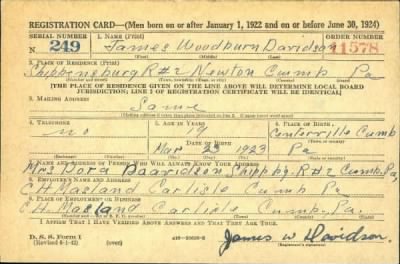 REGISTRATION CARD—(Men born on or after January 1, 1922 and on or before June 30, 1924)
SERIAL NUMBER 1. NAME (Print) ORDER NUMBER
249 James Woodburn Davidson 11578
2. PLACE OF RESIDENCE (Print)
Shippensburg R#2 Newton Cumb Pa
[THE PLACE OF RESIDENCE GIVEN ON THE LINE ABOVE WILL DETERMINE LOCAL BOARD
JURISDICTION; LINE 2 OF REGISTRATION CERTIFICATE WILL BE IDENTICAL]
3. MAILING ADDRESS
Same
4. TELEPHONE 5. AGE IN YEARS 6. PLACE OF BIRTH
no 19 Centerville Cumb
DATE OF BIRTH
Mar 23 1923 Pa
7. NAME AND ADDRESS OF PERSON WHO WILL ALWAYS KNOW YOUR ADDRESS
Mrs Dora Davidson Shippbg. R#2 Cumb. Pa,
8. EMPLOYER'S NAME AND ADDRESS
C H Masland Carlisle Cumb Pa
9. PLACE OF EMPLOYMENT OR BUSINESS
C. H. Masland Carlisle Cumb. Pa.
I AFFIRM THAT I HAVE VERIFIED ABOVE ANSWERS AND THAT THEY ARE TRUE.
D. S. S. Form 1
(Revised 6-1-42) (over) James W Davidson.
(Registrant's signature)